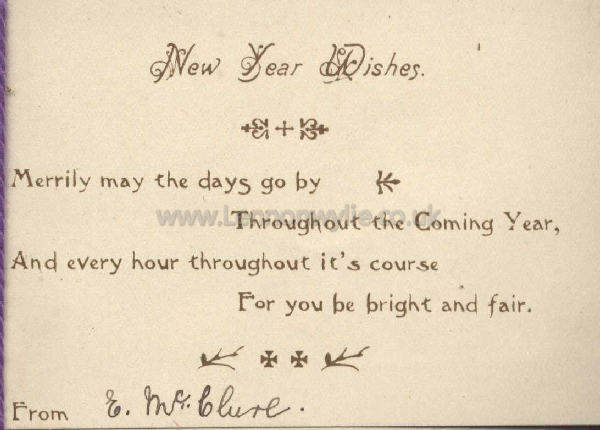 New Year Wishes.
Merrily may the days go by
www.Lennonwylie.co.uk
Throughout the Coming Year,
And every hour throughout it's course
For you be bright and fair.
From E. McClure.